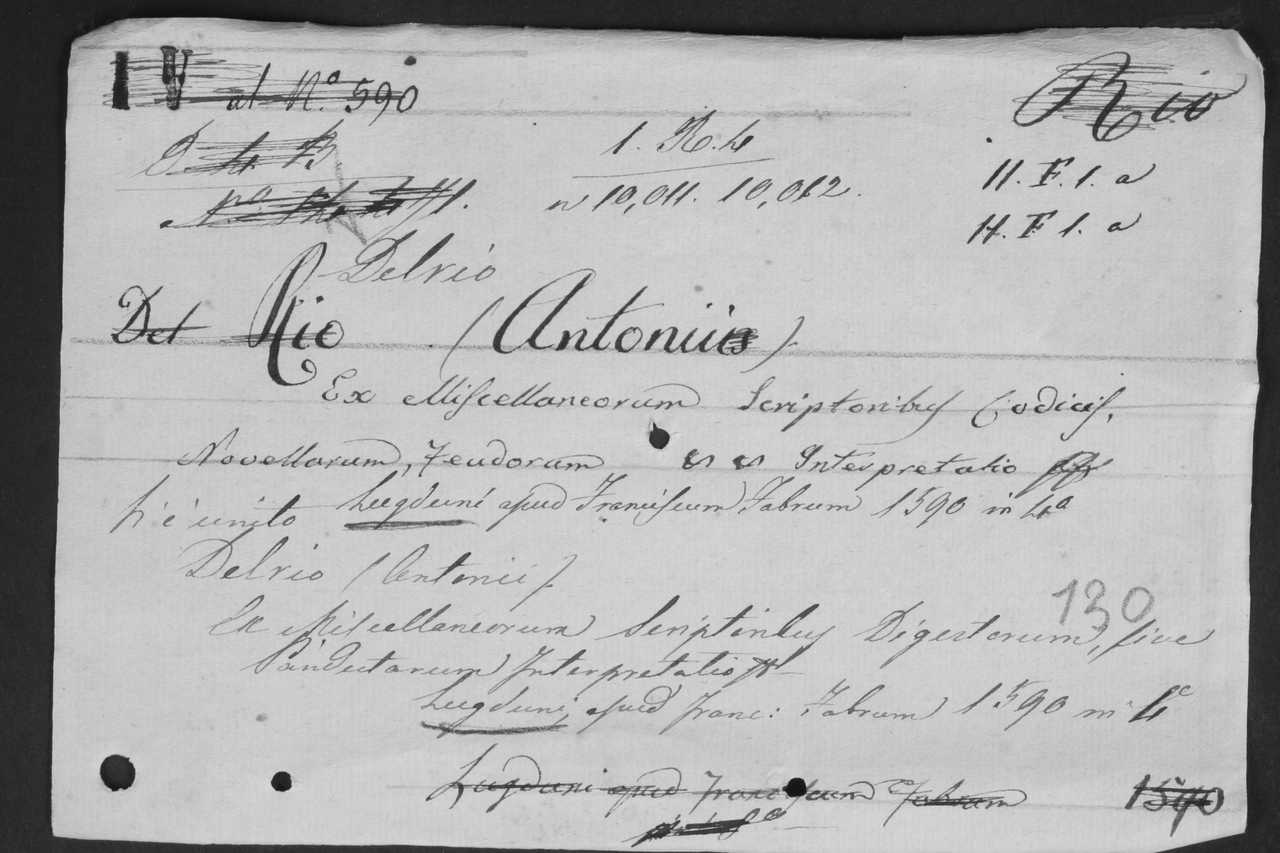 al N.º 590
Rio
1. R. 4
11. F. 1. a
n 10,011. 10,012.
11. F 1. a
Delrio
Del Rio (Antonii).
Ex Miscellaneorum Scriptoribus Codicis,
Novellarum, Feudorum Interpretatio
h' è unito Lugduni apud Franciscum Fabrum 1590 in 4º
Delrio (Antonii).
130
Ex Miscellaneorum Scriptoribus Digestorum, sive
Pandectarum Interpretatio
Lugduni, apud Franc: Fabrum 1590 in 4º
Lugduni apud Franciscum Fabrum 1590